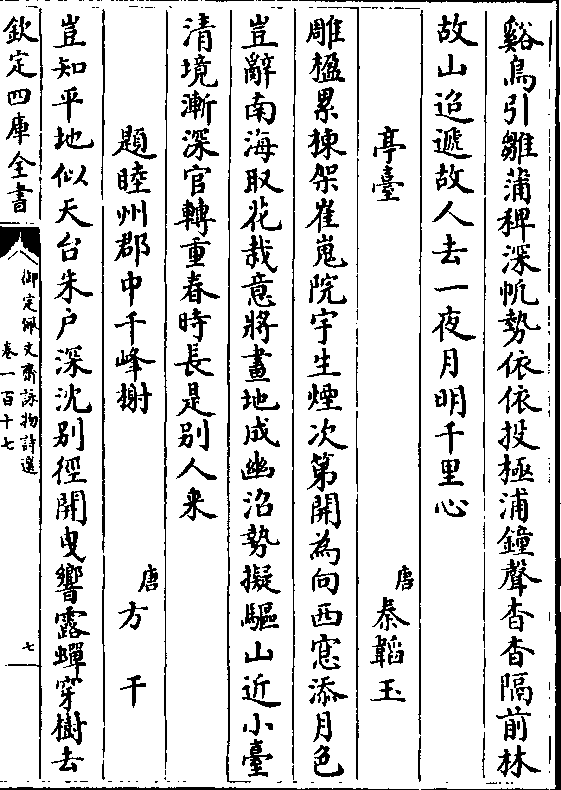 谿鳥引雛蒲稗深帆勢依依投極浦鐘聲杳杳隔前林
故山迢遞故人去一夜月明千里心
亭臺　唐秦韜玉
雕楹累棟架崔嵬院宇生煙次第開為向西窓添月色
豈辭南海取花栽意將畫地成幽沼勢擬驅山近小臺
清境漸深官轉重春時長是别人来
題睦州郡中千峰榭　唐方干
豈知平地似天台朱户深沈别徑開曳響露蟬穿樹去
欽定四庫全書
御定佩文齋詠物詩選
卷一百十七
七